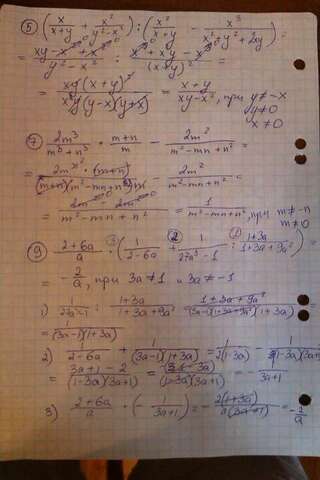 ⑤ (x/(x+y) + x²/(y²-x²)) : (x²/(x+y) - x³/(x²+y²+2xy)) =
= (xy - x² + x²)/(y² - x²) : (x³ + x²y - x³)/(x+y)² =
= xy(x+y)²/(x²y(y-x)(y+x)) = (x+y)/(xy-x²), при y≠-x
y≠0
x≠0
⑦ 2m³/(m³+n³) · (m+n)/m - 2m²/(m²-mn+n²) =
= 2m³ · (m+n)/((m+n)(m²-mn+n²)m) - 2m²/(m²-mn+n²) =
= (2m² - 2m²)/(m²-mn+n²) = 1/(m²-mn+n²), при m≠-n
m≠0
⑨ (2+6a)/a · (1/(2-6a) + 1/(27a³-1) : (1+3a)/(1+3a+9a²)) =
= -2/a, при 3a≠1 и 3a≠-1
1) 1/(27a³-1) : (1+3a)/(1+3a+9a²) = (1+3a+9a²)/((3a-1)(1+3a+9a²)(1+3a)) =
= 1/((3a-1)(1+3a))
2) 1/(2-6a) + 1/((3a-1)(1+3a)) = 1/(2(1-3a)) - 1/((1-3a)(1+3a)) =
= (3a+1-2)/((1-3a)(3a+1)) = = -1/(3a+1)
3) (2+6a)/a · (-1/(3a+1)) = -2(1+3a)/(a(3a+1)) = -2/a